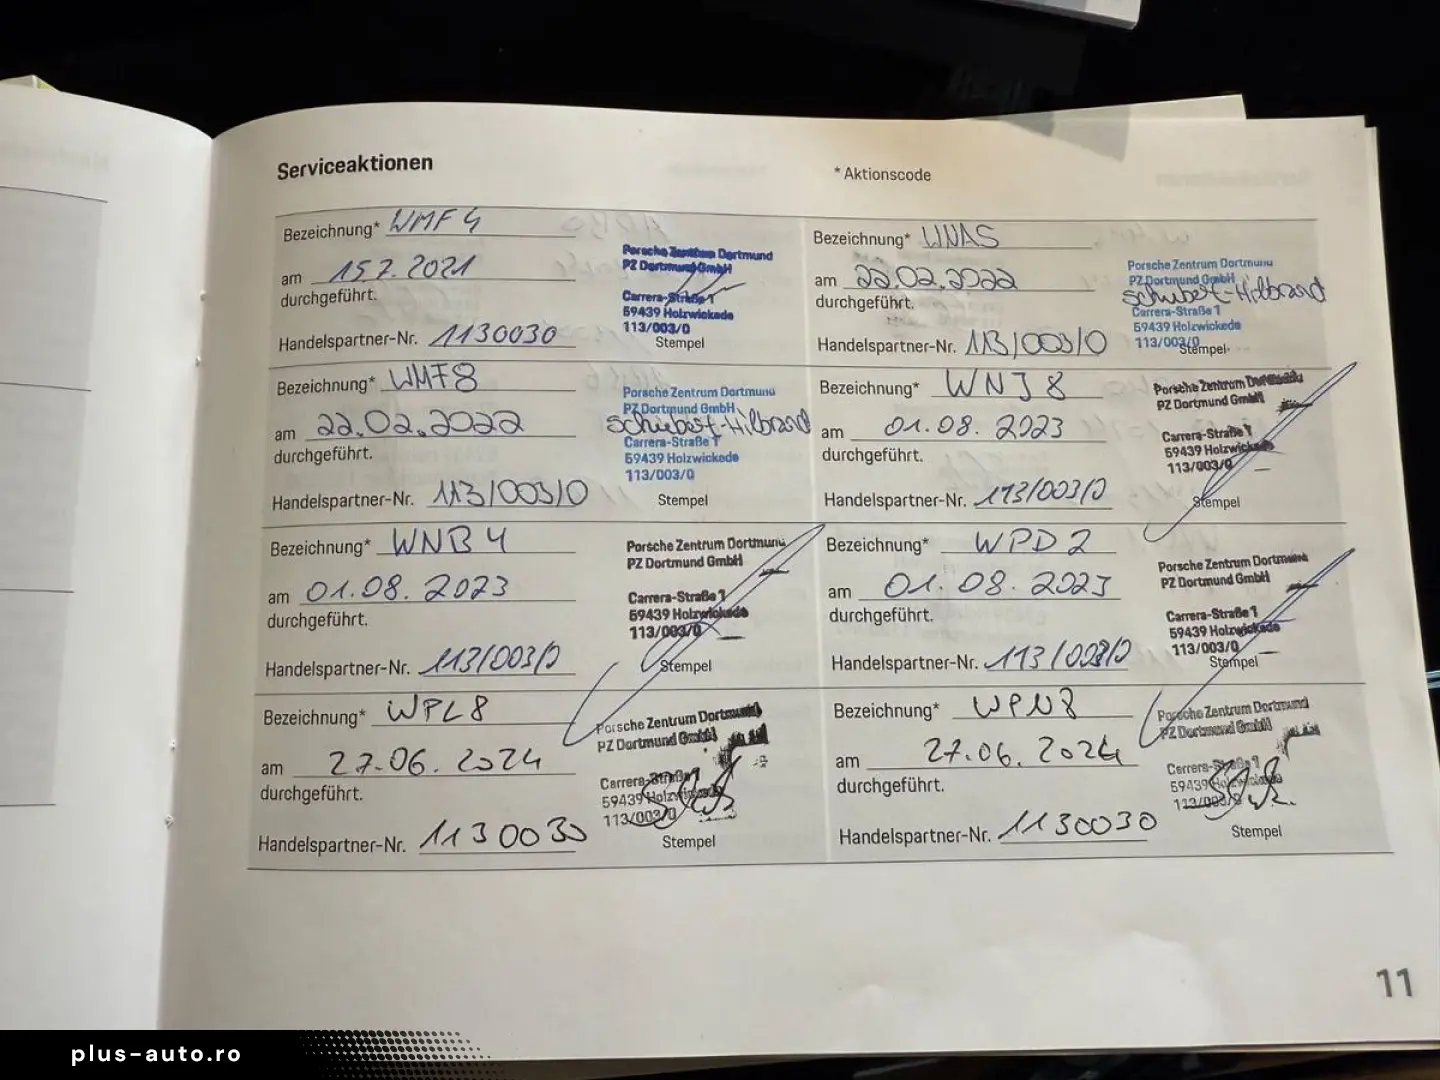 Serviceaktionen
* Aktionscode
Bezeichnung* WMF4
am 15.7.2021
durchgeführt.
Handelspartner-Nr. 1130030
Porsche Zentrum Dortmund
PZ Dortmund GmbH
Carrera-Straße 1
59439 Holzwickede
113/003/0
Stempel
Bezeichnung* WNA5
am 22.02.2022
durchgeführt.
Handelspartner-Nr. 113/003/0
Porsche Zentrum Dortmund
PZ Dortmund GmbH
Schubert-Hilbrand
Carrera-Straße 1
59439 Holzwickede
113/003/0
Stempel
Bezeichnung* WMF8
am 22.02.2022
durchgeführt.
Handelspartner-Nr. 113/003/0
Porsche Zentrum Dortmund
PZ Dortmund GmbH
Schubert-Hilbrand
Carrera-Straße 1
59439 Holzwickede
113/003/0
Stempel
Bezeichnung* WNJ8
am 01.08.2023
durchgeführt.
Handelspartner-Nr. 113/003/0
Porsche Zentrum Dortmund
PZ Dortmund GmbH
Carrera-Straße 1
59439 Holzwickede
113/003/0
Stempel
Bezeichnung* WNB4
am 01.08.2023
durchgeführt.
Handelspartner-Nr. 113/003/0
Porsche Zentrum Dortmund
PZ Dortmund GmbH
Carrera-Straße 1
59439 Holzwickede
113/003/0
Stempel
Bezeichnung* WPD2
am 01.08.2023
durchgeführt.
Handelspartner-Nr. 113/003/0
Porsche Zentrum Dortmund
PZ Dortmund GmbH
Carrera-Straße 1
59439 Holzwickede
113/003/0
Stempel
Bezeichnung* WPL8
am 27.06.2024
durchgeführt.
Handelspartner-Nr. 1130030
Porsche Zentrum Dortmund
PZ Dortmund GmbH
Carrera-Straße 1
59439 Holzwickede
113/003/0
Stempel
Bezeichnung* WPN8
am 27.06.2024
durchgeführt.
Handelspartner-Nr. 1130030
Porsche Zentrum Dortmund
PZ Dortmund GmbH
Carrera-Straße 1
59439 Holzwickede
113/003/0
Stempel
11
plus-auto.ro